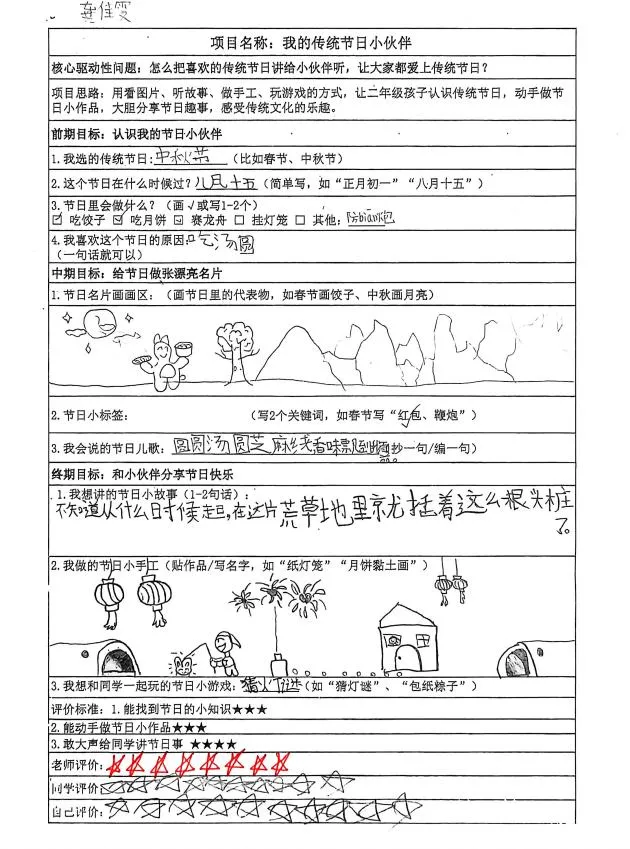 龚佳雯
项目名称：我的传统节日小伙伴
核心驱动性问题：怎么把喜欢的传统节日讲给小伙伴听，让大家都爱上传统节日？
项目思路：用看图片、听故事、做手工、玩游戏的方式，让二年级孩子认识传统节日，动手做节
日小作品，大胆分享节日趣事，感受传统文化的乐趣。
前期目标：认识我的节日小伙伴
1.我选的传统节日:中秋节（比如春节、中秋节）
2.这个节日在什么时候过？八月十五（简单写，如“正月初一”“八月十五”）
3.节日里会做什么？（画√或写1-2个）
☑ 吃饺子 ☑ 吃月饼 ☑ 赛龙舟 □ 挂灯笼 □ 其他:放bian炮
4.我喜欢这个节日的原因:吃汤圆
（一句话就可以）
中期目标：给节日做张漂亮名片
1.节日名片画画区：（画节日里的代表物，如春节画饺子、中秋画月亮）
2.节日小标签： （写2个关键词，如春节写“红包、鞭炮”）
3.我会说的节日儿歌：圆圆汤圆芝麻绕着香味飘到（抄一句/编一句）
终期目标：和小伙伴分享节日快乐
1.我想讲的节日小故事（1-2句话）：
不知道从什么时候起，在这片荒草地里就挂着这么根头桩
了。
2.我做的节日小手工（贴作品/写名字，如“纸灯笼”“月饼黏土画”）
3.我想和同学一起玩的节日小游戏：猜灯谜（如“猜灯谜”、“包纸粽子”）
评价标准：1.能找到节日的小知识★★★
2.能动手做节日小作品★★★
3.敢大声给同学讲节日事 ★★★★
老师评价:☆☆☆☆☆☆☆☆
同学评价:☆☆☆☆☆☆☆☆☆
自己评价:☆☆☆☆☆☆☆☆☆